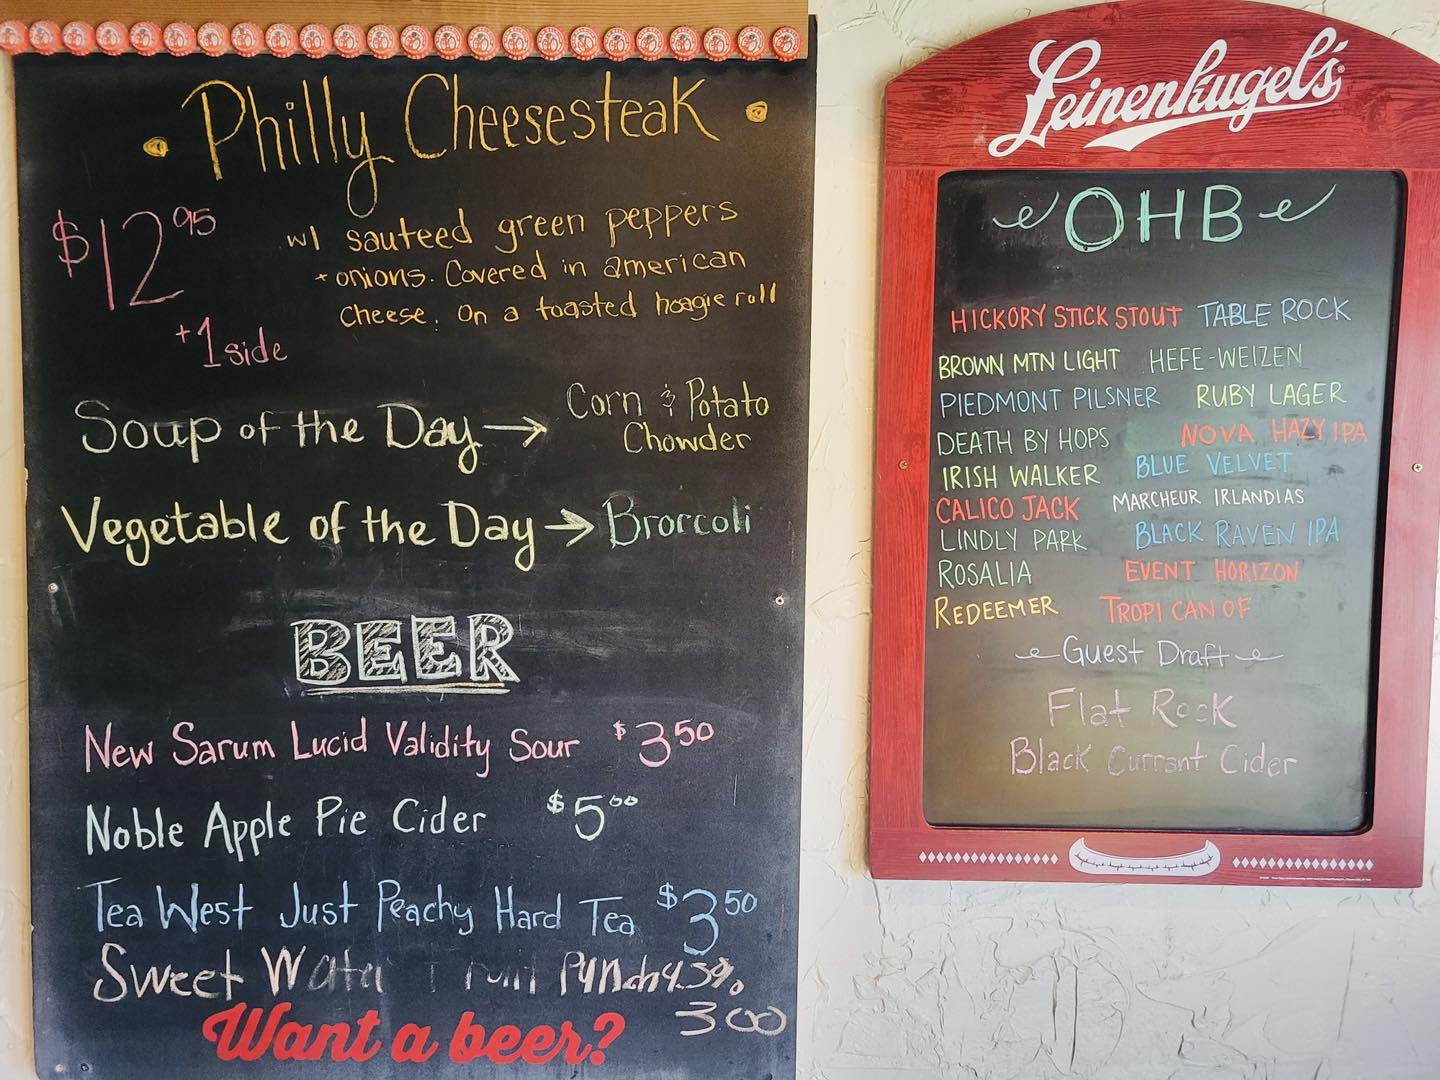 Philly Cheesesteak
$12.95
w/ sauteed green peppers
+ onions. Covered in american
cheese. On a toasted hoagie roll
+1 side
Soup of the Day → Corn & Potato
Chowder
Vegetable of the Day → Brorcoli
BEER
New Sarum Lucid Validity Sour $3.50
Noble Apple Pie Cider $5.00
Tea West Just Peachy Hard Tea $3.50
Sweet Water Punch 4.5%
3 00
Want a beer?
Leinenkugel's
OHB
HICKORY STICK STOUT TABLE ROCK
BROWN MTN LIGHT HEFE-WEIZEN
PIEDMONT PILSNER RUBY LAGER
DEATH BY HOPS NOVA HAZY IPA
IRISH WALKER BLUE VELVET
CALICO JACK MARCHEUR IRLANDIAS
LINDLY PARK BLACK RAVEN IPA
ROSALIA EVENT HORIZON
REDEEMER TROPI CAN OF
Guest Draft
Flat Rock
Black Currant Cider